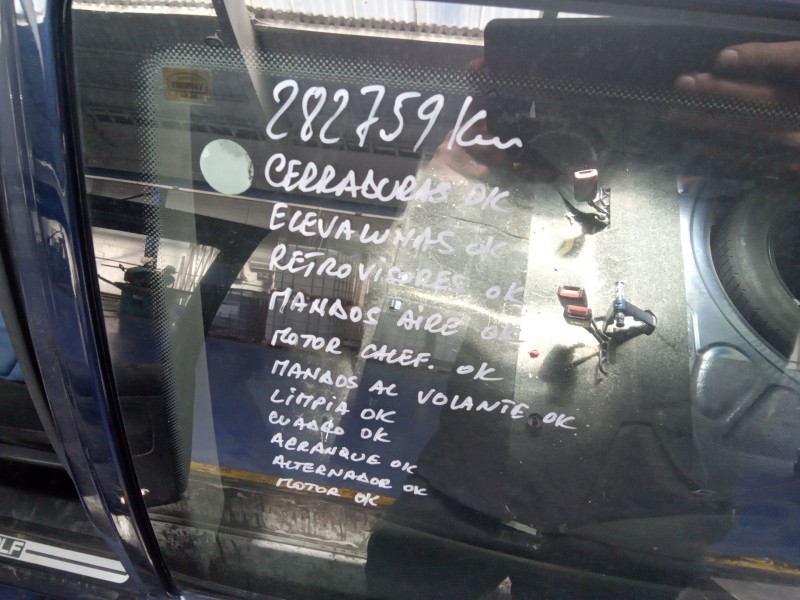 282759 Km
CERRADURAS OK
ELEVALUNAS OK
RETROVISORES OK
MANDOS AIRE OK
MOTOR CALEF. OK
MANDOS AL VOLANTE OK
LIMPIA OK
CUADRO OK
ARRANQUE OK
ALTERNADOR OK
MOTOR OK
LF